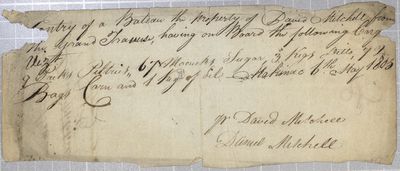 Entry of a Bateau the Property of David Mitchell from
the Grand Traverse, having on Board the following Cargo
Vizt
9 Packs Peltries, 67 Mococks Sugar, 3 Kegs
Bags Corn and 1 Keg of Oil. Makinac 6th May 1803
pr David Mitchell
Daniel Mitchell